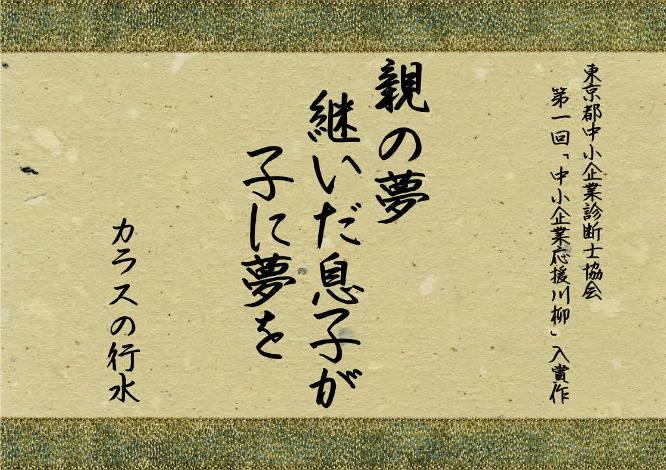 東京都中小企業診断士協会
第一回「中小企業応援川柳」入賞作
親の夢
継いだ息子が
子に夢を
カラスの行水